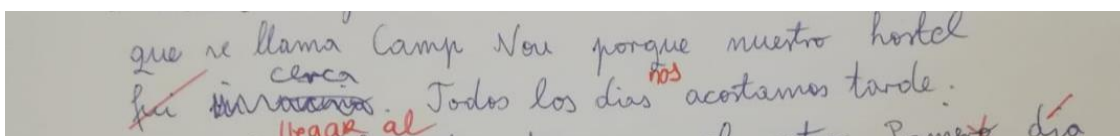 que se llama Camp Nou porque nuestro hostel
cerca
fui . Todos los dias nos acostamos tarde.
llegar al
día